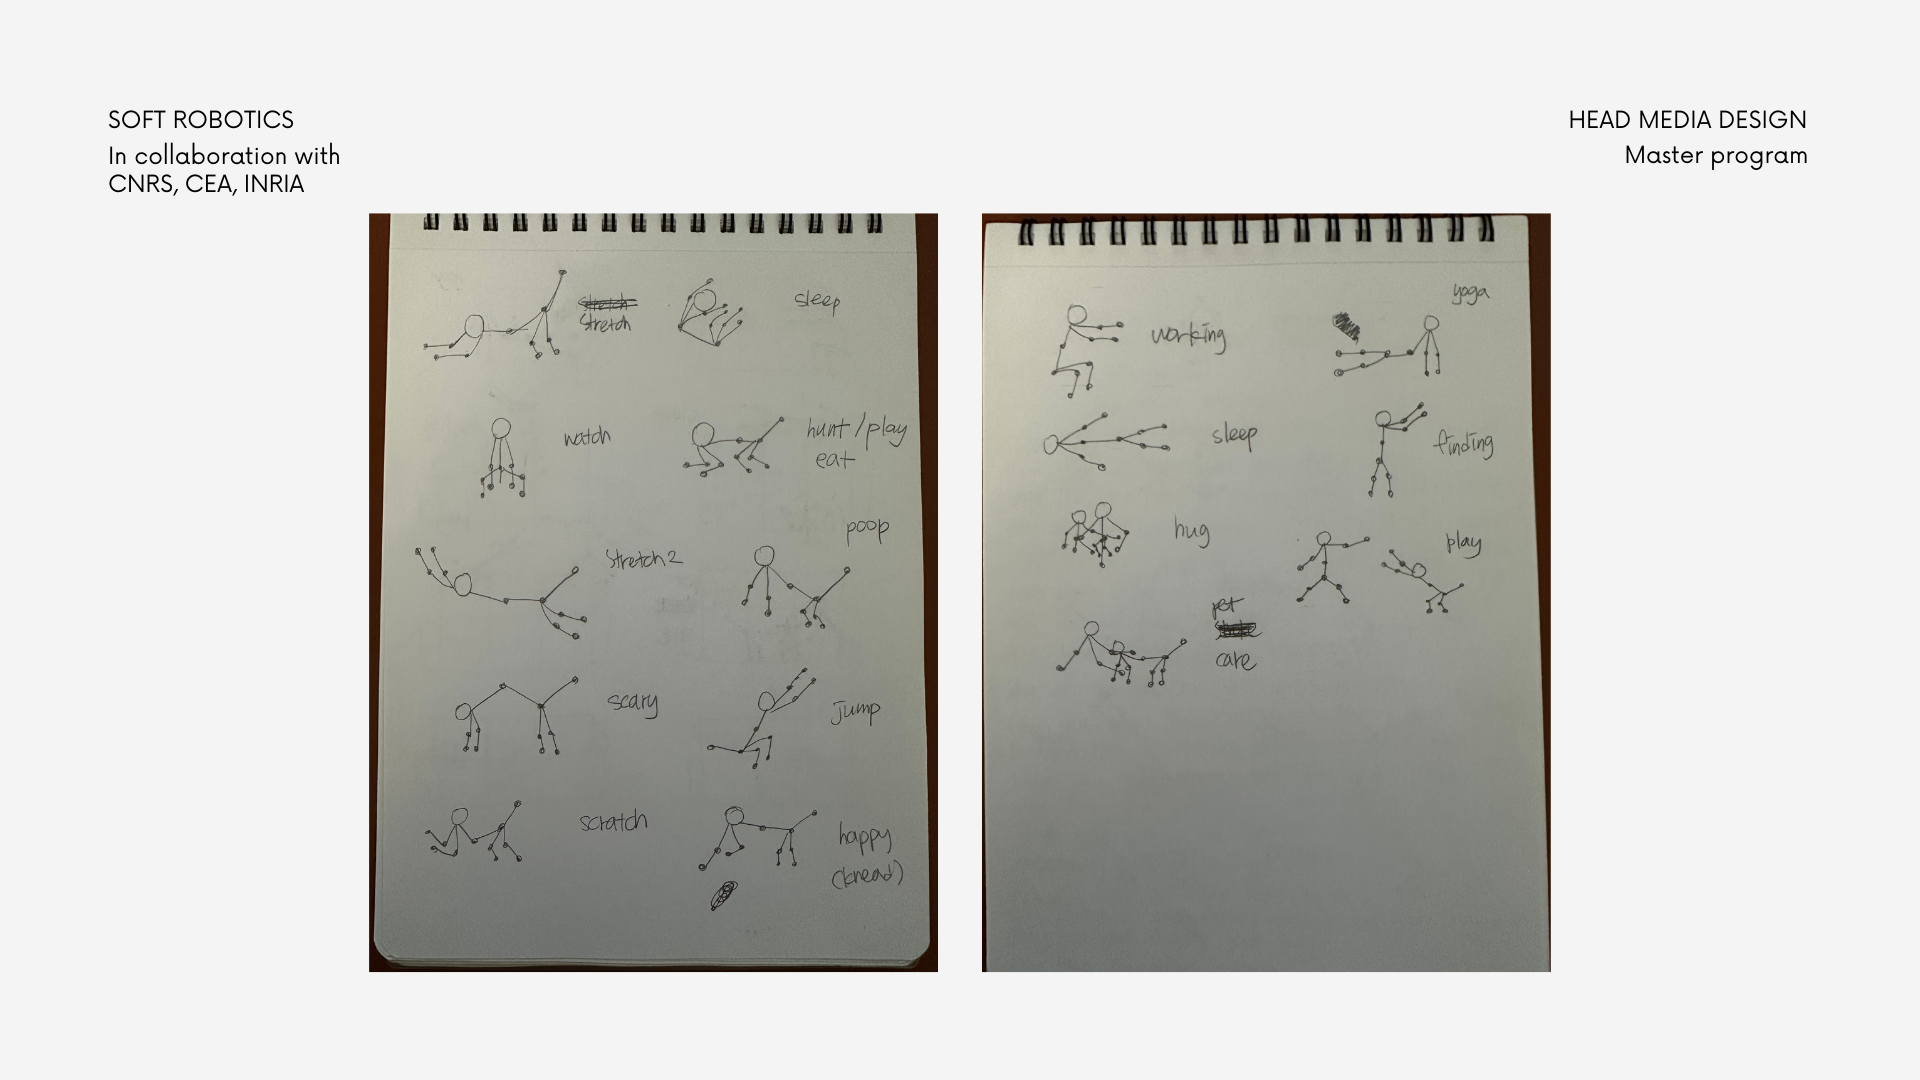 SOFT ROBOTICS
In collaboration with
CNRS, CEA, INRIA
HEAD MEDIA DESIGN
Master program
Stretch
Stretch
sleep
watch
hunt/play
eat
Stretch 2
poop
scary
Jump
scratch
happy
(knead)
working
yoga
sleep
finding
hug
play
pet
care